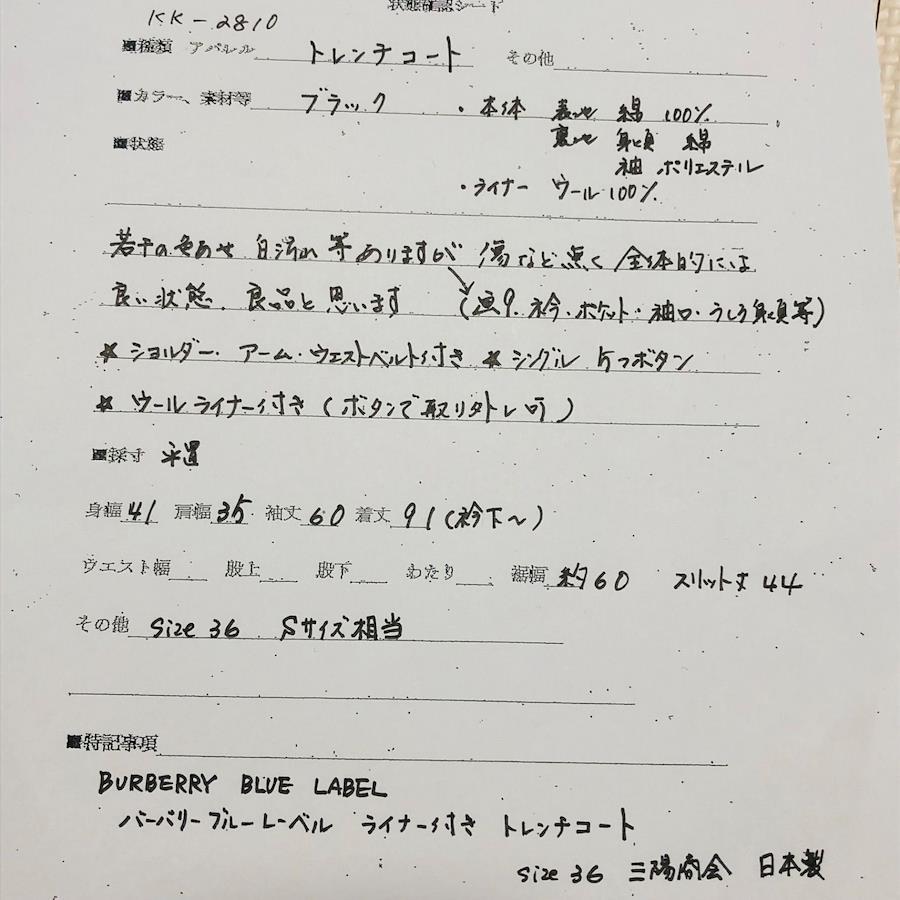 状態確認シート
KK-2810
■種類 アパレル トレンチコート その他
■カラー、素材等 ブラック ・本体 表地 綿 100%
裏地 身頃 綿
■状態
袖 ポリエステル
・ライナー ウール100%
若干の色あせ 白汚れ 等ありますが 傷など無く 全体的には
良い状態、良品と思います (画9. 衿・ポケット・袖口・うしろ身頃等)
★ ショルダー・アーム・ウエストベルト付き ★ シングル 5つボタン
★ ウールライナー付き (ボタンで取り外し可)
■採寸 平置
身幅 41 肩幅 35 袖丈 60 着丈 91(衿下~)
ウエスト幅 股上 股下 わたり 裾幅 約60 スリット丈 44
その他 size 36 Sサイズ相当
■特記事項
BURBERRY BLUE LABEL
バーバリーブルーレーベル ライナー付き トレンチコート
size 36 三陽商会 日本製